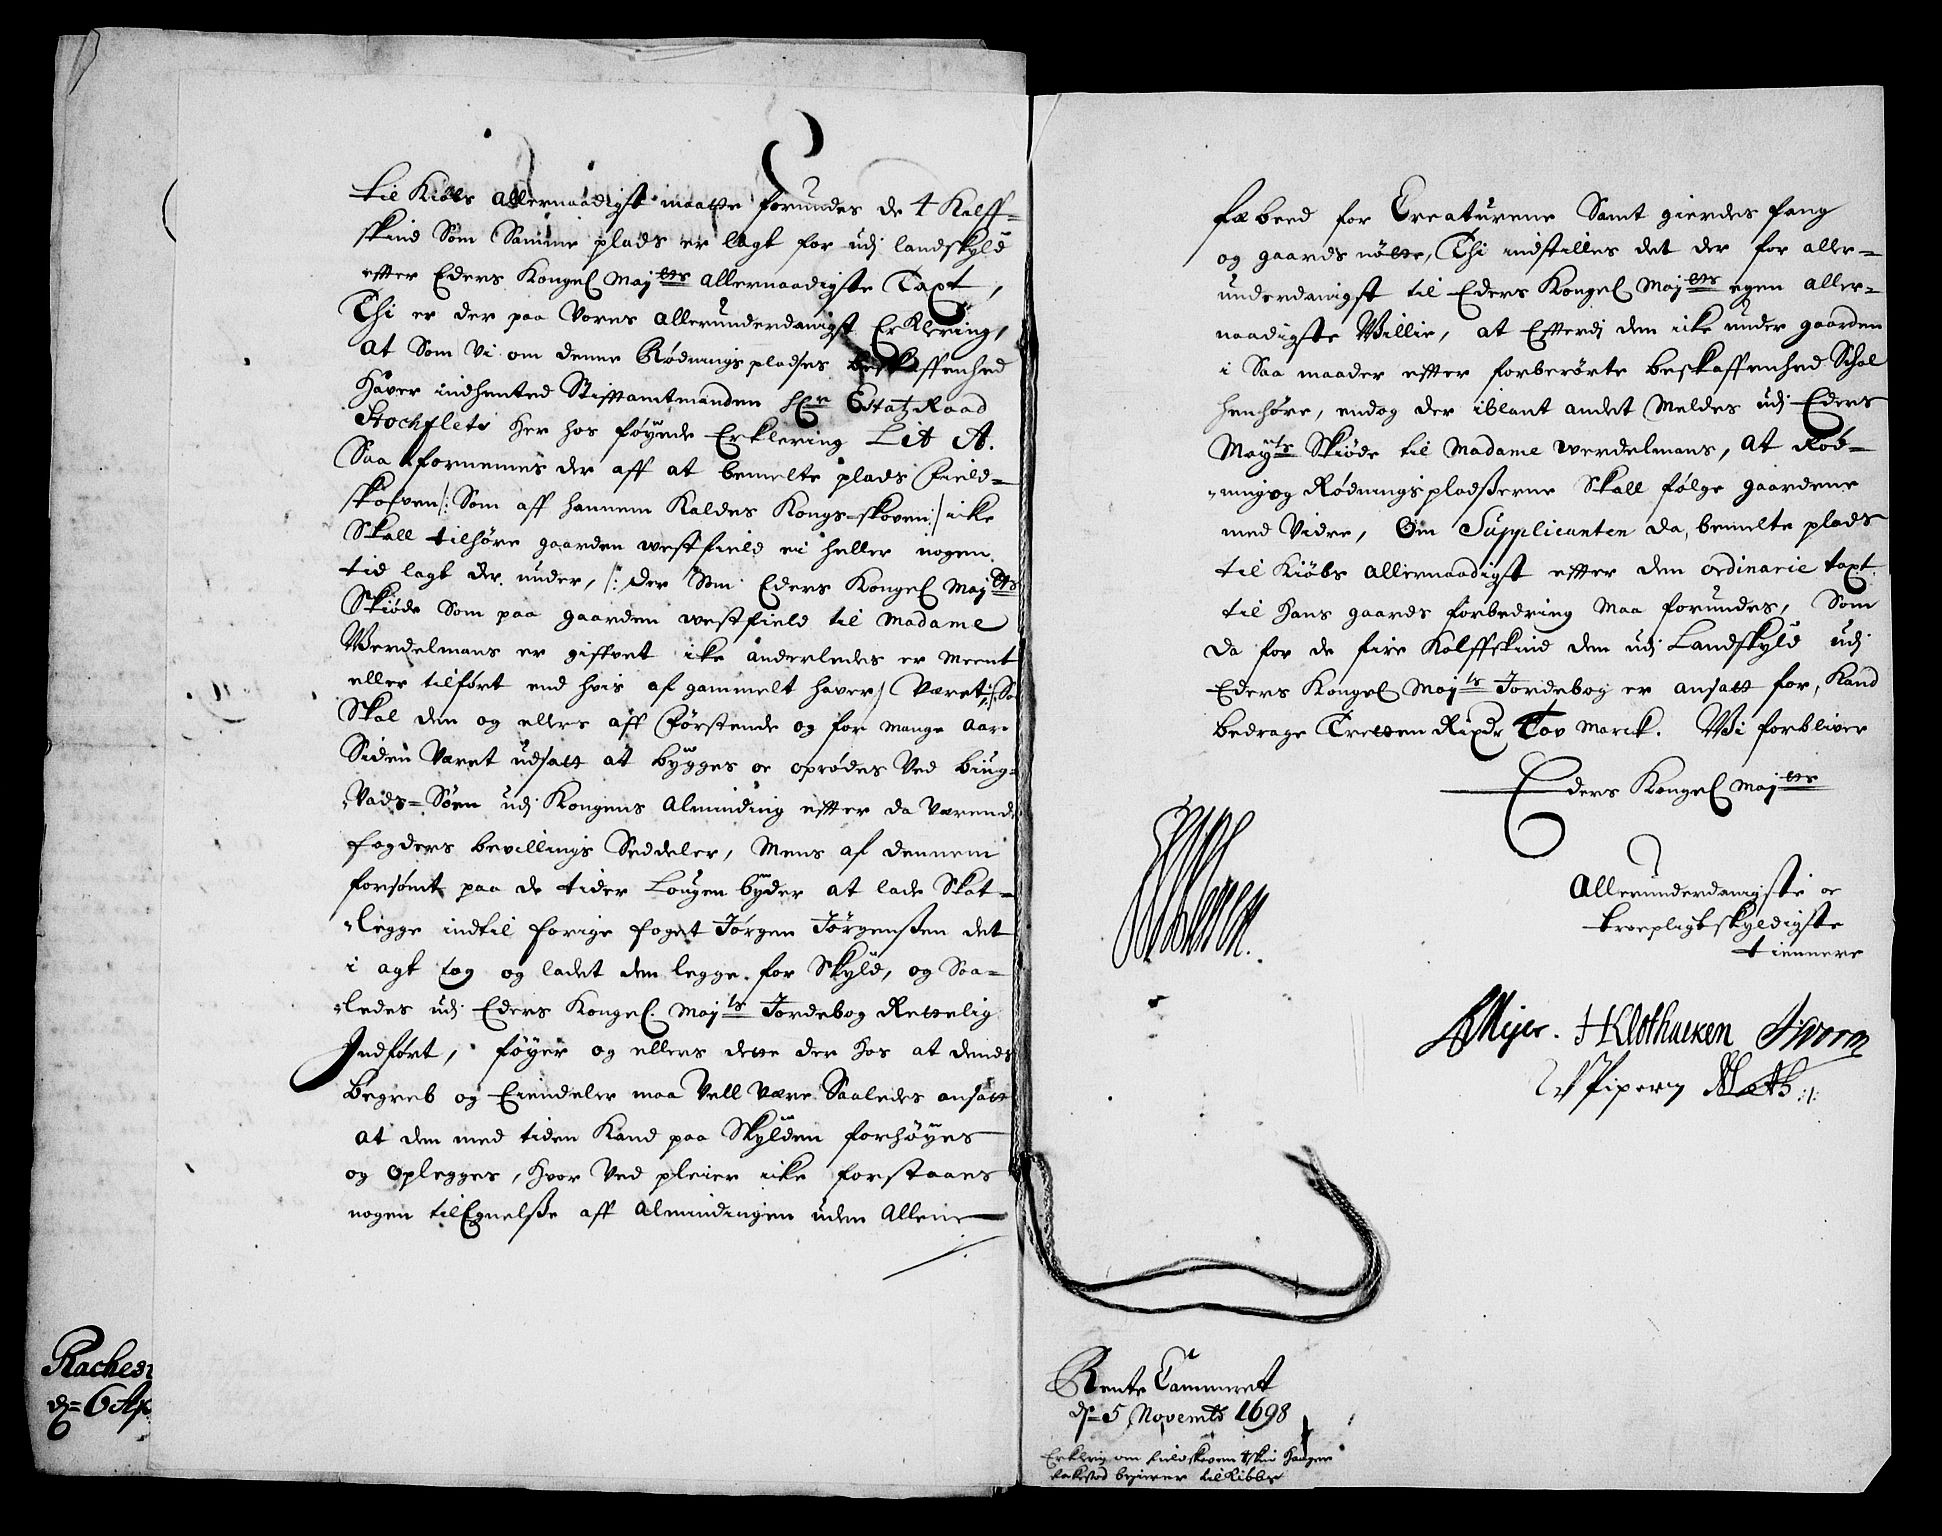 til Kiøbs allernaadigst maatte forundes de 4 Kalff=
skind Som Samme plads er lagt for udj landskyld
efter Eders Kongel Majtts allernaadigste Taxt,
Thi er der paa Vores allerunderdanigst Erklering,
at Som Vi om denne Rødnings pladses beskaffenhed
haver indhented Stiftamtmanden Hr Etatz Raad
Stochflets her hos føyede Erklering Lit A.
Saa fornemes der aff at bemelte plads Field=
skofven /: Som aff hannem Kaldes Kongs=skoven :/ icke
Skall tilhøre gaarden westfield ei heller nogen
tid lagt der under, /: der Som Eders Kongel Majtts
Skiøde Som paa gaarden westfield til Madame
Werdelmans er gifvet icke anderledes er meent
eller tilført end hvis af gammelt haver Været :/ So
Skal den og ellers aff Førstende og for mange aar
Siden Været udsatt at bygges oc oprødes Ved
Vads=Søen udj Kongens Alminding effter da Værende
fogders bevillings Seddeler, Mens af dennem
forsømt paa de tider Lougen byder at lade Skat=
legge indtil forige foget Jørgen Jørgenßen det
i agt tog og ladet dem legge for Skyld, og Saa=
ledes udj Eders Kongel. Majts Jordebog Rettelig
Indført, føyer og ellers dette der hos at dends
begreb og Eiendeler maa Vell Være Saaledes ansatt
at den med tiden Kand paa Skylden forhøyes
og Oplegges, hvor Ved pleier icke forstaaes
nogen tilEgnelße aff Almindingen uden Allene
fæbeed for Creaturene Samt gierdes fang
og gaards nøtte, Thi indstilles det der for aller=
underdanigst til Eders Kongel Majtts egen aller=
naadigste Villie, at Efterdj den icke under gaarden
i Saa maader effter forberørte beskaffenhed Schal
henhøre, endog der iblant andet Meldes udj Eders
Mayts Skiøde til Madame werdelmans, at Rød=
ning og Rødnings pladßerne Skall følge gaardene
med Videre, Om Supplicanten da, bemelte plads
til Kiøbs allernaadigst effter den ordinarie taxt
til hans gaards forbedring Maa forundes, Som
da for de fire Kalffskind den udj Landskyld udj
Eders Kongel Majts Jordebog er ansatt for, Kand
bedrage Tretten Rixdr Tov Marck. Wi forbliver
Eders Kongel Majtts
Allerunderdanigste oc
troepligtskyldigste
tiennere
Meyer. H Klothacken J Worm
Piper Moth
Rente Cammeret
dn 5 Novembr 1698
Erklering om fieldskoven
begierer til Kiøbs
Raches
dn 6 Ap